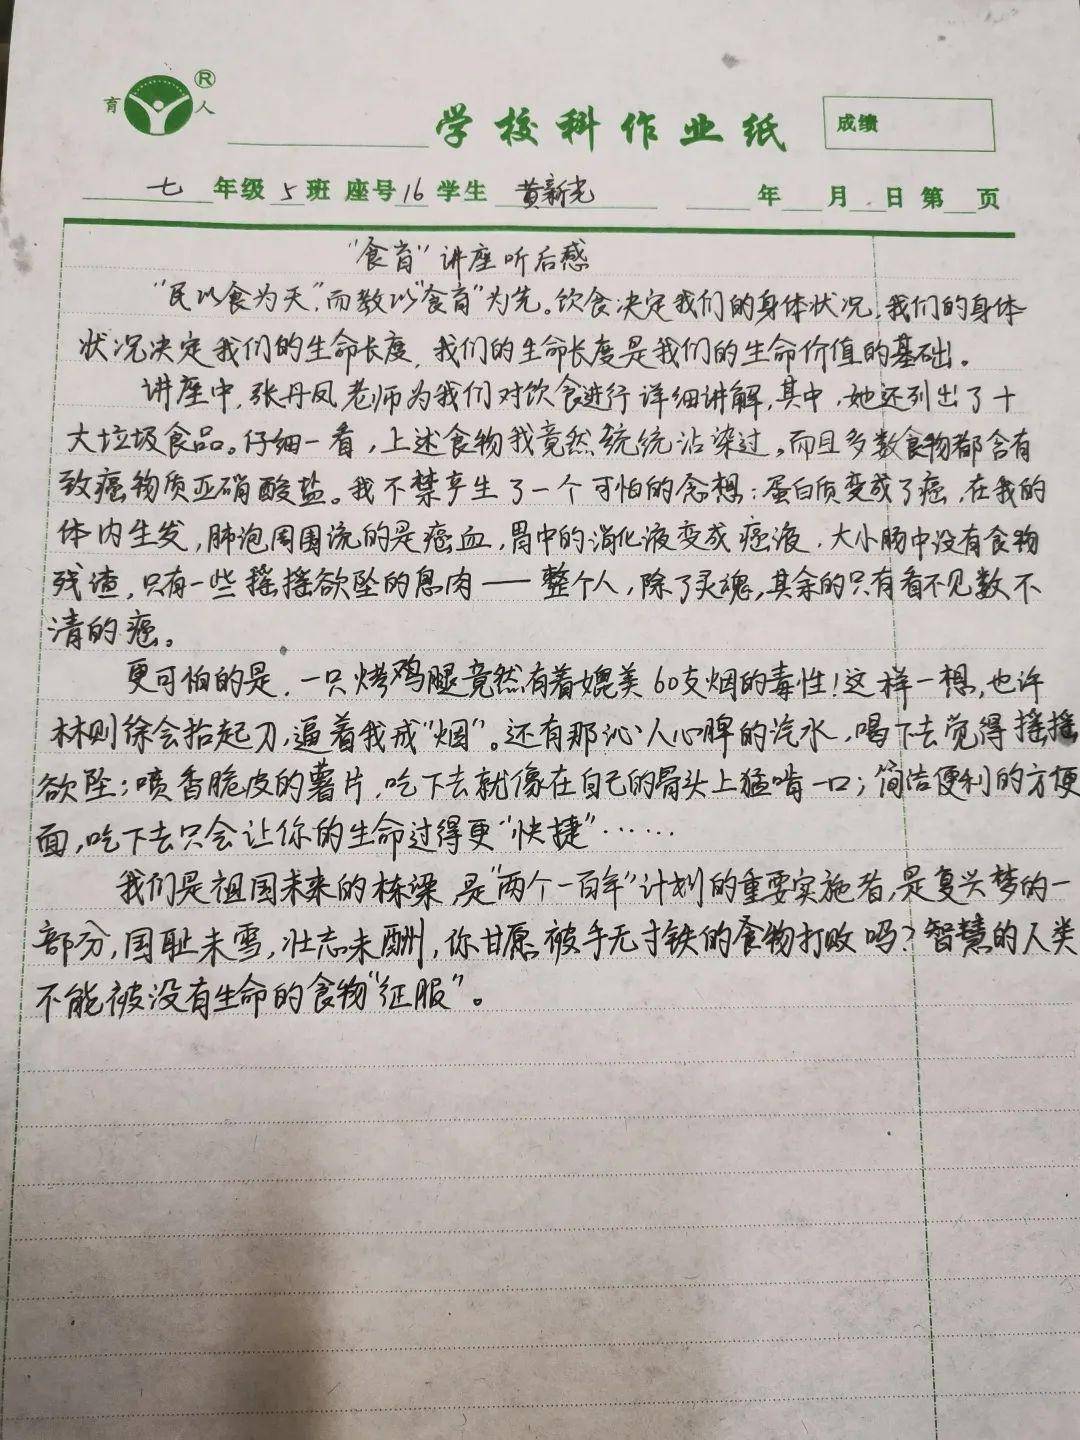 育 人 ®
学校科作业纸 成绩
七 年级 5 班 座号 16 学生 黄新光 年 月 日 第 页
"食育"讲座听后感
"民以食为天",而教以"食育"为先。饮食决定我们的身体状况,我们的身体
状况决定我们的生命长度,我们的生命长度是我们的生命价值的基础。
讲座中,张丹凤老师为我们对饮食进行详细讲解,其中,她还列出了十
大垃圾食品。仔细一看,上述食物我竟然统统沾染过,而且多数食物都含有
致癌物质亚硝酸盐。我不禁产生了一个可怕的念想:蛋白质变成了癌,在我的
体内生发,肺泡周围流的是癌血,胃中的消化液变成癌液,大小肠中没有食物
残渣,只有一些摇摇欲坠的息肉——整个人,除了灵魂,其余的只有看不见数不
清的癌。
更可怕的是,一只烤鸡腿竟然有着媲美60支烟的毒性!这样一想,也许
林则徐会抬起刀,逼着我戒"烟"。还有那沁人心脾的汽水,喝下去觉得摇摇
欲坠;喷香脆皮的薯片,吃下去就像在自己的骨头上猛啃一口;简洁便利的方便
面,吃下去只会让你的生命过得更"快捷"……
我们是祖国未来的栋梁,是"两个一百年"计划的重要实施者,是复兴梦的一
部分,国耻未雪,壮志未酬,你甘愿被手无寸铁的食物打败吗?智慧的人类
不能被没有生命的食物"征服"。